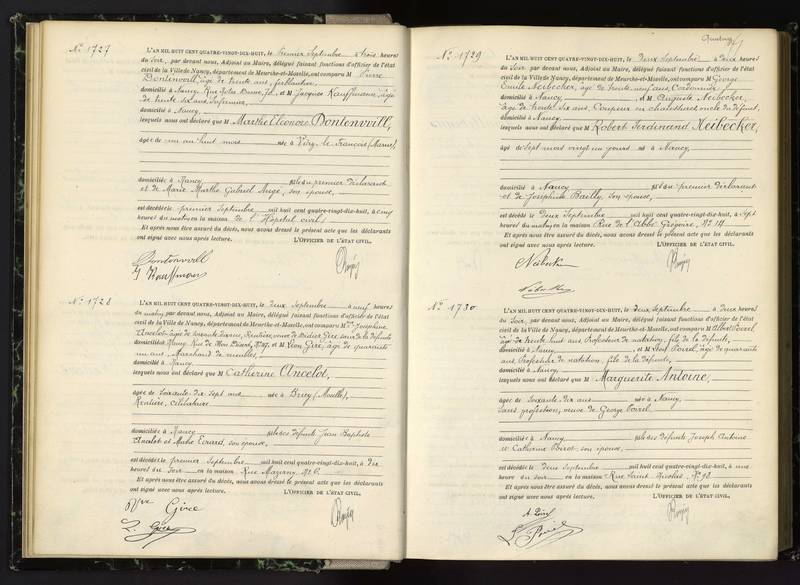 N° 1727
L'AN MIL HUIT CENT QUATRE-VINGT-DIX-HUIT, le premier Septembre à trois heures
du soir, par devant nous, Adjoint au Maire, délégué faisant fonctions d'officier de l'état
civil de la Ville de Nancy, département de Meurthe-et-Moselle, ont comparu M Pierre
Dontenwill, âgé de trente ans, ferblantier,
domicilié à Nancy, Rue et M Jacques Kauffmann, âgé
de trente six ans, infirmier,
domicilié à Nancy,
lesquels nous ont déclaré que M Marthe Eléonore Dontenwill,
âgée de un an huit mois née à Vitry le François (Marne),
domiciliée à Nancy fille du premier déclarant
et de Marie Marthe Gabriel Ange, son épouse,
est décédée le premier Septembre mil huit cent quatre-vingt-dix-huit, à cinq
heures du matin en la maison de l'Hôpital civil
Et après nous être assuré du décès, nous avons dressé le présent acte que les déclarants
ont signé avec nous après lecture. L'OFFICIER DE L'ÉTAT CIVIL,
Dontenwill
Kauffmann
N° 1728
L'AN MIL HUIT CENT QUATRE-VINGT-DIX-HUIT, le deux Septembre à neuf heures
du matin par devant nous, Adjoint au Maire, délégué faisant fonctions d'officier de l'état
civil de la Ville de Nancy, département de Meurthe-et-Moselle, ont comparu Mme Joséphine
Ancelot, âgée de soixante ans, Rentière, veuve de Gire, soeur de la défunte
domiciliée à Nancy, Rue et M Léon Gire, âgé de quarante
un ans, Marchand de meubles,
domicilié à Nancy
lesquels nous ont déclaré que M Catherine Ancelot,
âgée de soixante dix sept ans née à Briey (Moselle),
Rentière, célibataire
domiciliée à Nancy fille des défunts Jean Baptiste
Ancelot et Marie Evrard, son épouse,
est décédée le premier Septembre mil huit cent quatre-vingt-dix-huit, à dix
heures du soir en la maison Rue Mazagran N° 6
Et après nous être assuré du décès, nous avons dressé le présent acte que les déclarants
ont signé avec nous après lecture. L'OFFICIER DE L'ÉTAT CIVIL,
Vve Gire
L. Gire
N° 1729
L'AN MIL HUIT CENT QUATRE-VINGT-DIX-HUIT, le deux Septembre à deux heures
du soir par devant nous, Adjoint au Maire, délégué faisant fonctions d'officier de l'état
civil de la Ville de Nancy, département de Meurthe-et-Moselle, ont comparu M George
Emile Neibecker, âgé de trente neuf ans, Cordonnier,
domicilié à Nancy, et M Auguste Neibecker,
âgé de trente six ans, Coupeur en chaussures, oncle du défunt,
domicilié à Nancy
lesquels nous ont déclaré que M Robert Ferdinand Neibecker,
âgé de sept mois vingt un jours né à Nancy,
domicilié à Nancy fils du premier déclarant
et de Joséphine Bailly, son épouse,
est décédé le deux Septembre mil huit cent quatre-vingt-dix-huit, à sept
heures du matin en la maison Rue de l'Abbé Grégoire, N° 14
Et après nous être assuré du décès, nous avons dressé le présent acte que les déclarants
ont signé avec nous après lecture. L'OFFICIER DE L'ÉTAT CIVIL,
Neibecker
N° 1730
L'AN MIL HUIT CENT QUATRE-VINGT-DIX-HUIT, le deux Septembre à deux heures
du soir, par devant nous, Adjoint au Maire, délégué faisant fonctions d'officier de l'état
civil de la Ville de Nancy, département de Meurthe-et-Moselle, ont comparu M Albert Poirel
âgé de trente huit ans, Professeur de natation, fils de la défunte,
domicilié à Nancy et M Léon Poirel, âgé de quarante
ans, Professeur de natation, fils de la défunte,
domicilié à Nancy,
lesquels nous ont déclaré que M Marguerite Antoine,
âgée de soixante dix ans née à Nancy,
sans profession, veuve de George Poirel
domiciliée à Nancy fille des défunts Joseph Antoine
et Catherine son épouse,
est décédée le deux Septembre mil huit cent quatre-vingt-dix-huit, à une
heure du soir en la maison Rue Saint Nicolas, N° 98
Et après nous être assuré du décès, nous avons dressé le présent acte que les déclarants
ont signé avec nous après lecture. L'OFFICIER DE L'ÉTAT CIVIL,
A. Poirel
L. Poirel